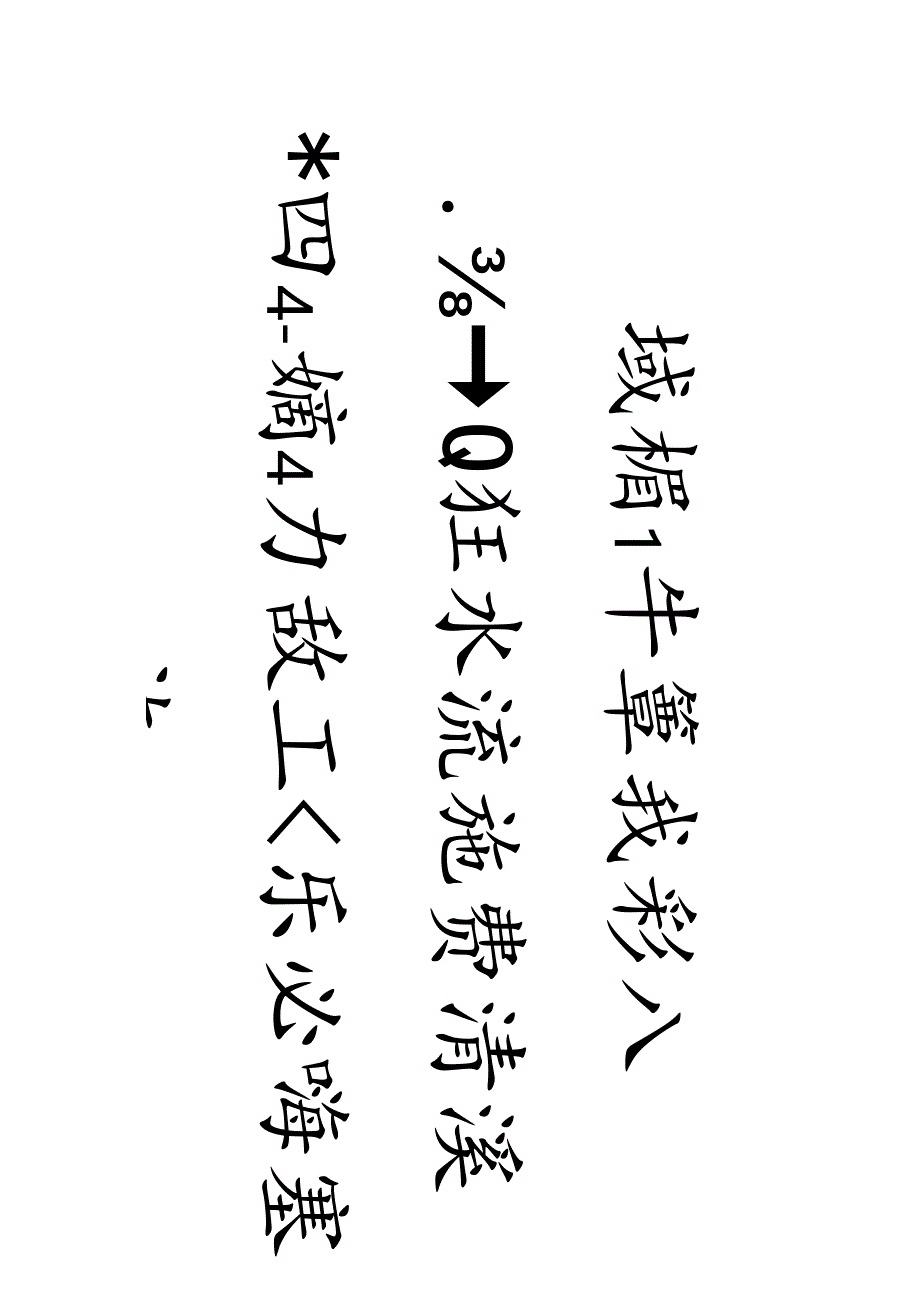 域楣1牛箪我彩八
.⅜➡Q狂水流施费清溪
*四4-嫡4力敌工<乐必嗨塞